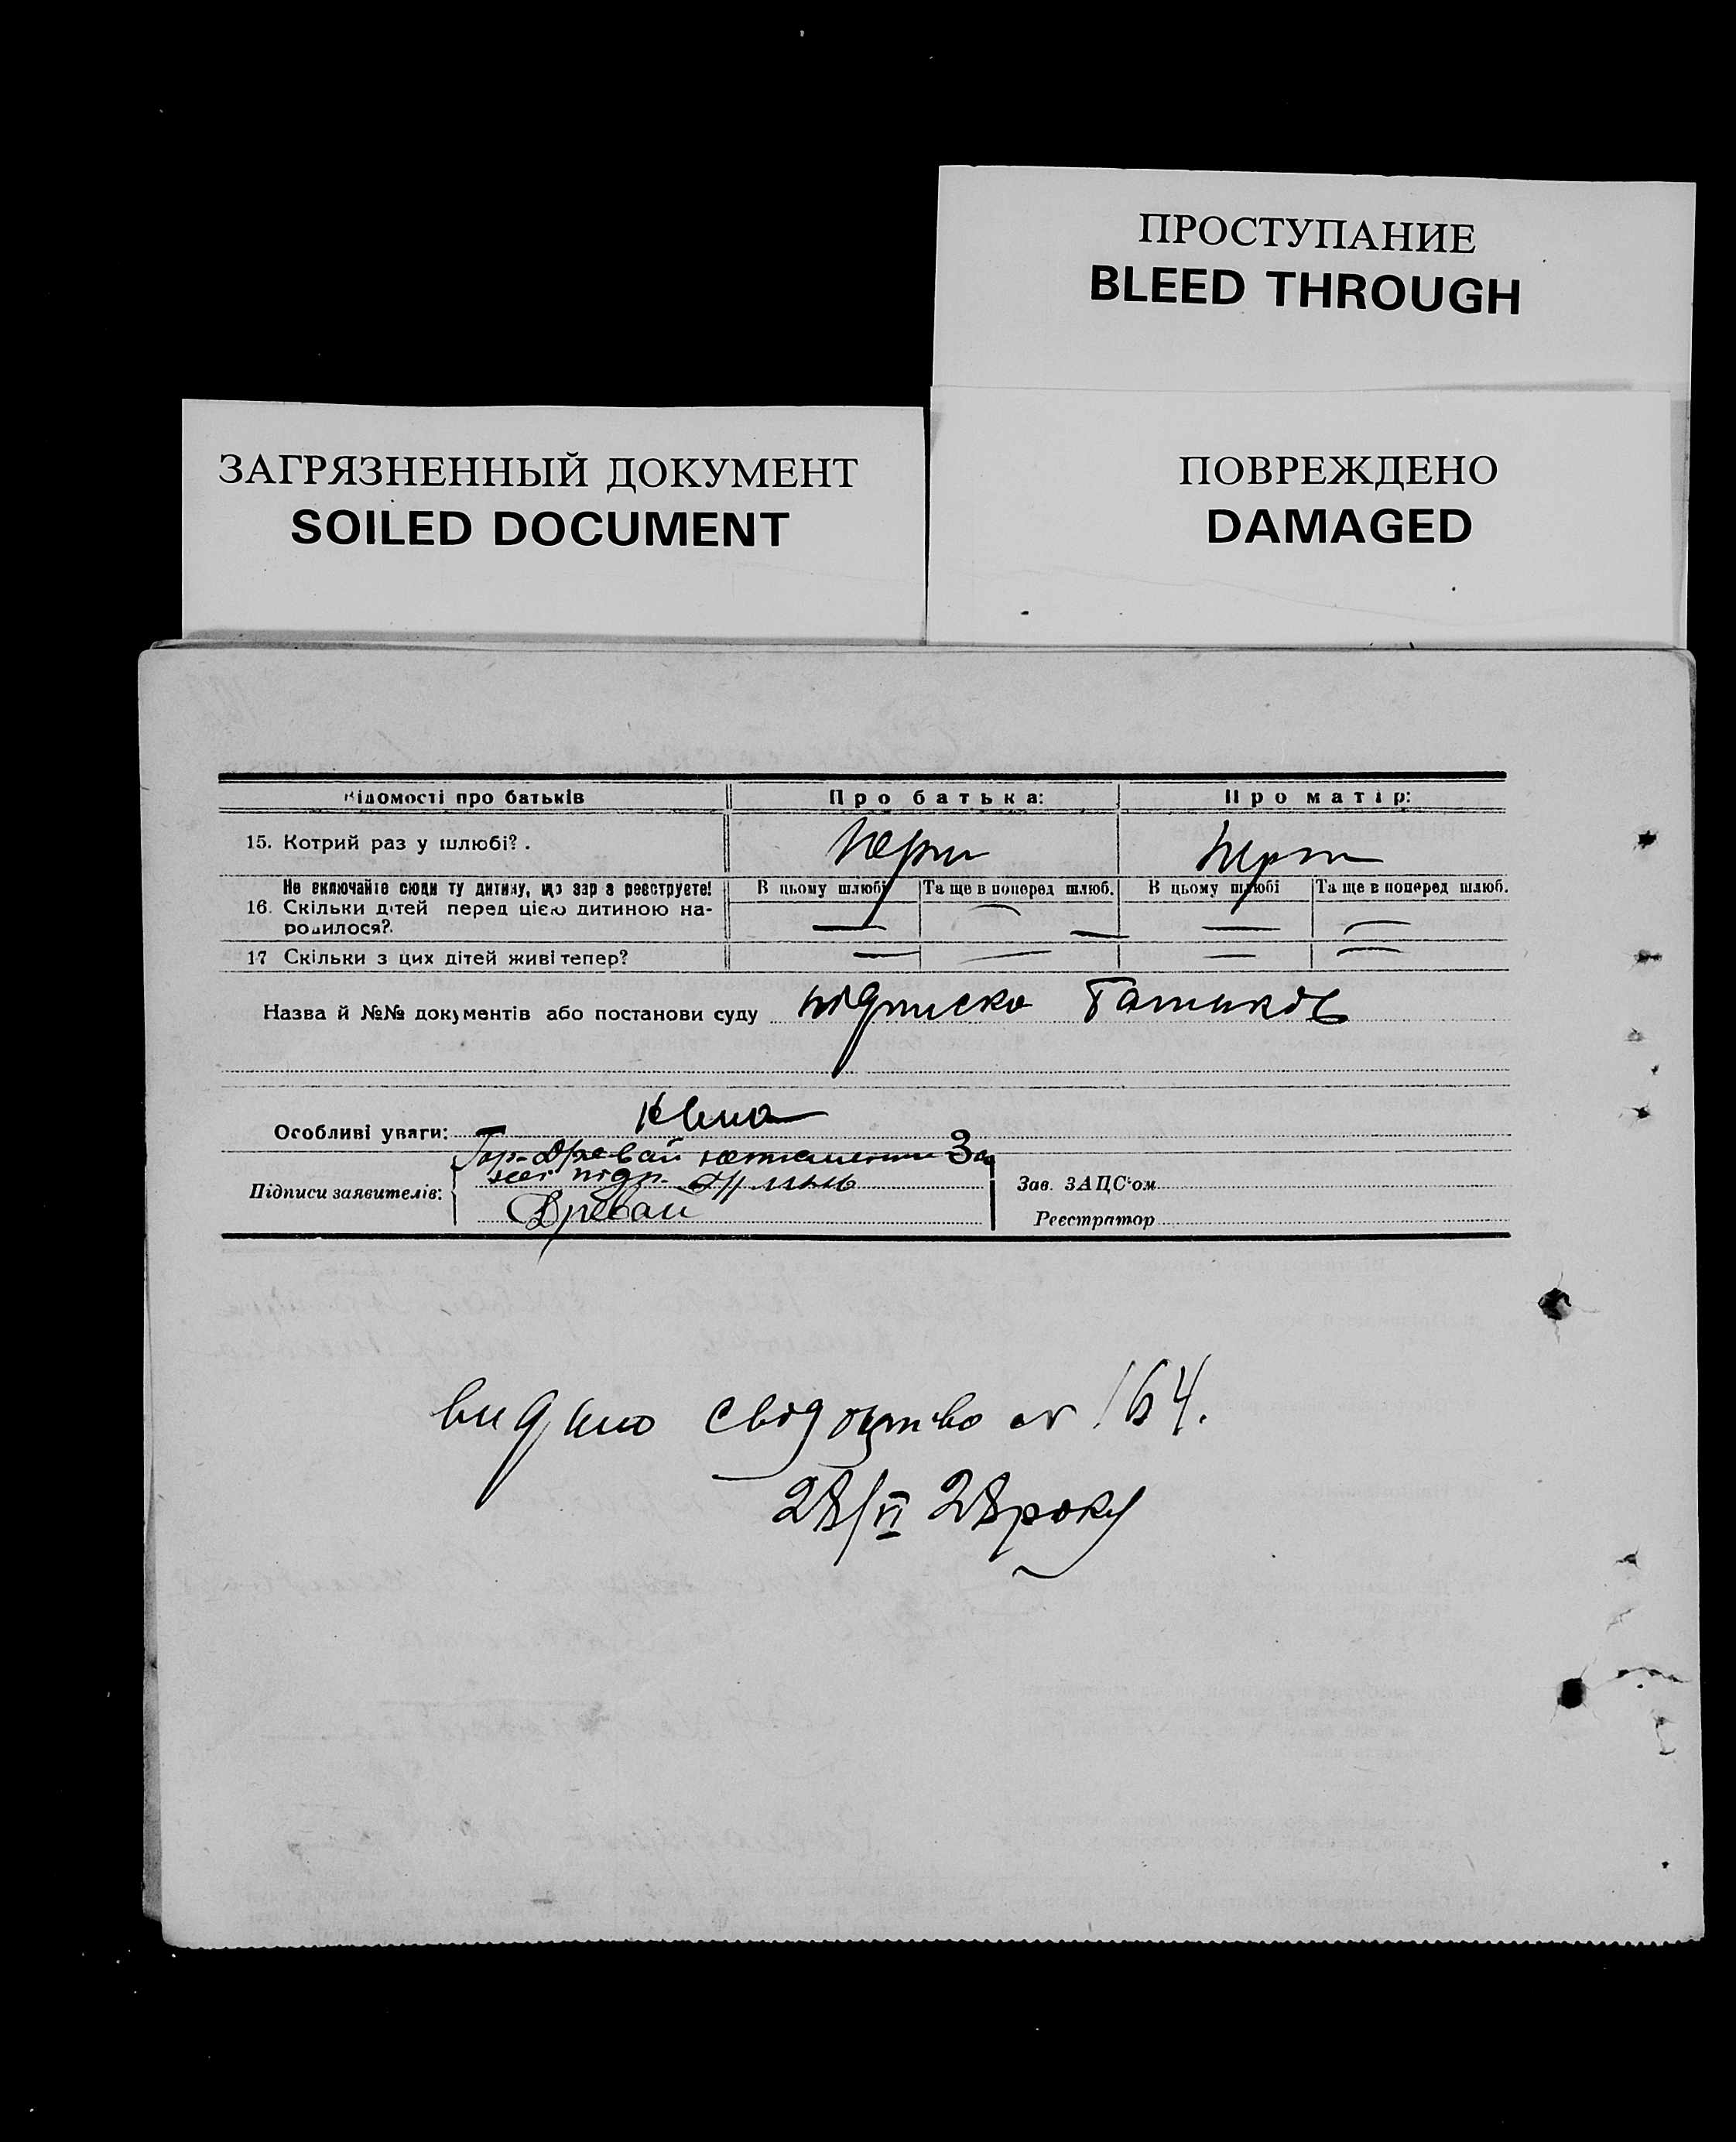 ПРОСТУПАНИЕ
BLEED THROUGH
ЗАГРЯЗНЕННЫЙ ДОКУМЕНТ
SOILED DOCUMENT
ПОВРЕЖДЕНО
DAMAGED
Відомості про батьків Про батька: Про матір:
15. Котрий раз у шлюбі?.
Не включайте сюди ту дитину, що зараз реєструєте! В цьому шлюбі Та ще в поперед шлюб. В цьому шлюбі Та ще в поперед шлюб.
16. Скільки дітей перед цією дитиною на-
родилося?.
17 Скільки з цих дітей живі тепер?
Назва й №№ документів або постанови суду підписка батьків
Особливі уваги:
Древаи За
Підписи заявителів: підп. Зав. ЗАЦС'ом
Древаи Реєстратор
видано свідоцтво № 164.
28/VI 28 року